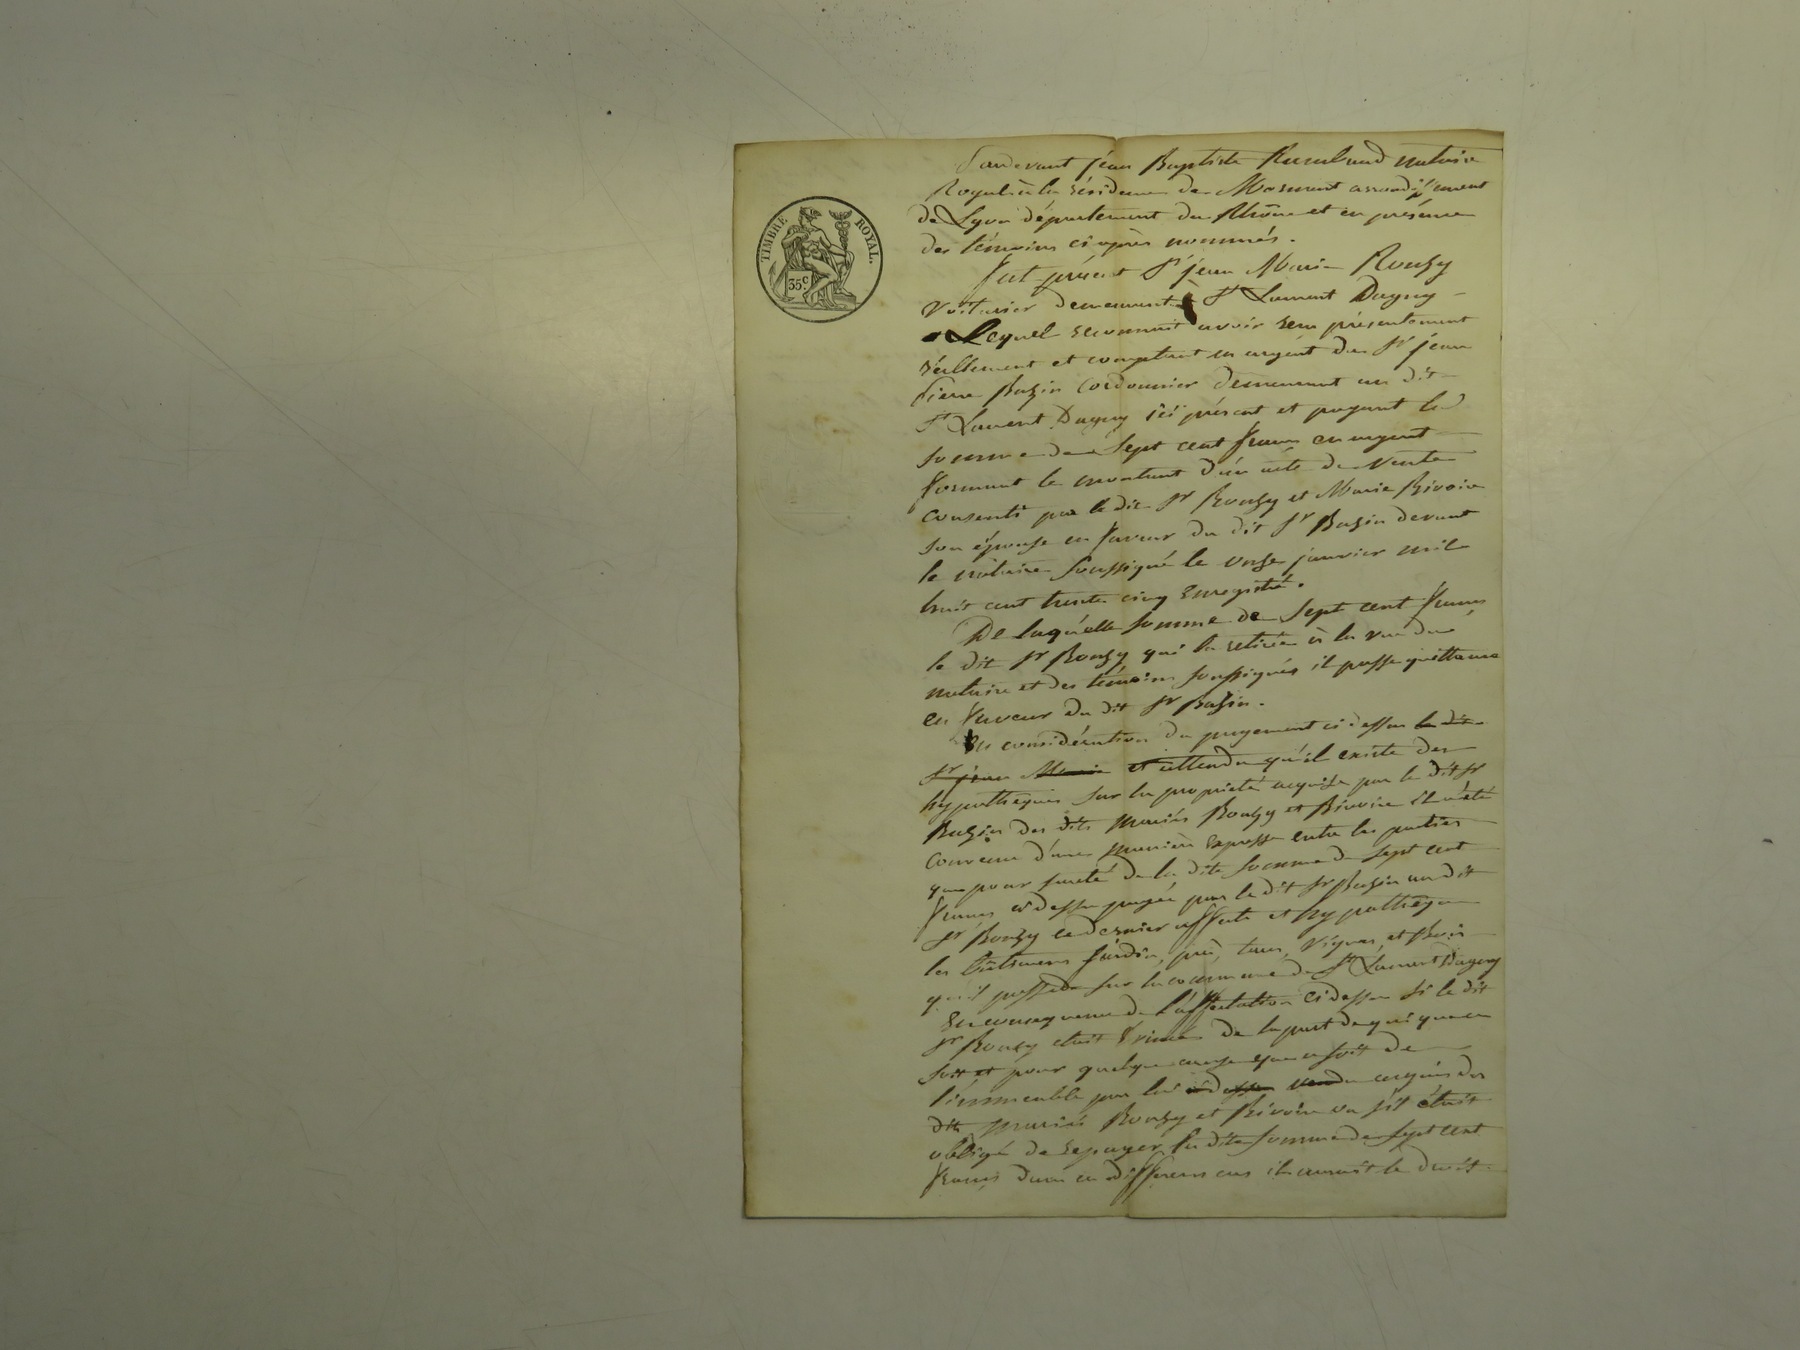 TIMBRE ROYAL.
35c.
Pardevant jéan Baptiste notaire
Royal à la résidence de Mornant arrondissement
de Lyon département du Rhône et en présence
des témoins ci après nommés.
fut présent Sr jean Marie Rouzy
Voiturier demeurant à St Laurent Dagny
Lequel reconnait avoir reçu présentement
réellement et comptant en argent du Sr jean
Pierre Bazin Cordonnier demeurant au dit
St Laurent Dagny ici présent et payant la
somme de Sept cent francs en argent
formant le montant d'un acte de Vente
consenti par le dit Sr Rouzy et Marie Rivoire
son épouse en faveur du dit Sr Bazin devant
le notaire soussigné le onze janvier mil
huit cent trente cinq Enregistré.
De laquelle somme de Sept cent francs
le dit Sr Rouzy qui la retirée à la vue du
notaire et des témoins soussignés il passe quittance
en faveur du dit Sr Bazin.
En considération du payement ci dessus le dit
Sr jean Marie et attendu qu'il existe des
hypothèques sur la propriété acquise par le dit Sr
Bazin des dits Mariés Rouzy et Rivoire il a été
convenu d'une manière Expresse entre les parties
que pour sureté de la dite somme de Sept cent
francs ci dessus payée par le dit Sr Bazin au dit
Sr Rouzy ce dernier affecte et hypothèque
les bâtimens jardin, pré, terre, Vignes, et Bois
qu'il possède sur la commune de St Laurent Dagny
En consequence de l'affectation ci dessus si le dit
Sr était de la part de qui que ce
soit et pour quelque cause que ce soit de
l'immeuble par lui ci dessus vendu acquis des
dits mariés Rouzy et Rivoire ou s'il était
obligé de repayer la dite somme de Sept cent
francs dans ces différens cas il aurait le droit